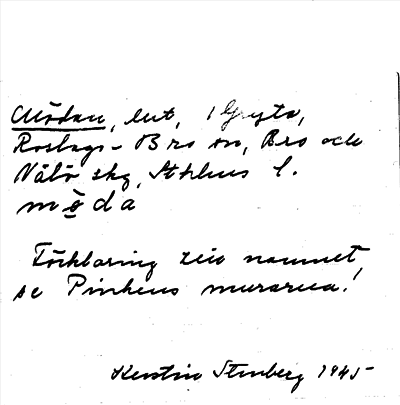 Mödan, lnt, 1 Gryta,
Roslags-Bro sn, Bro och
Vätö skg, Sthlms l.
möda
Förklaring till namnet
se Pinkens murarna!
Kerstin Stenberg 1945